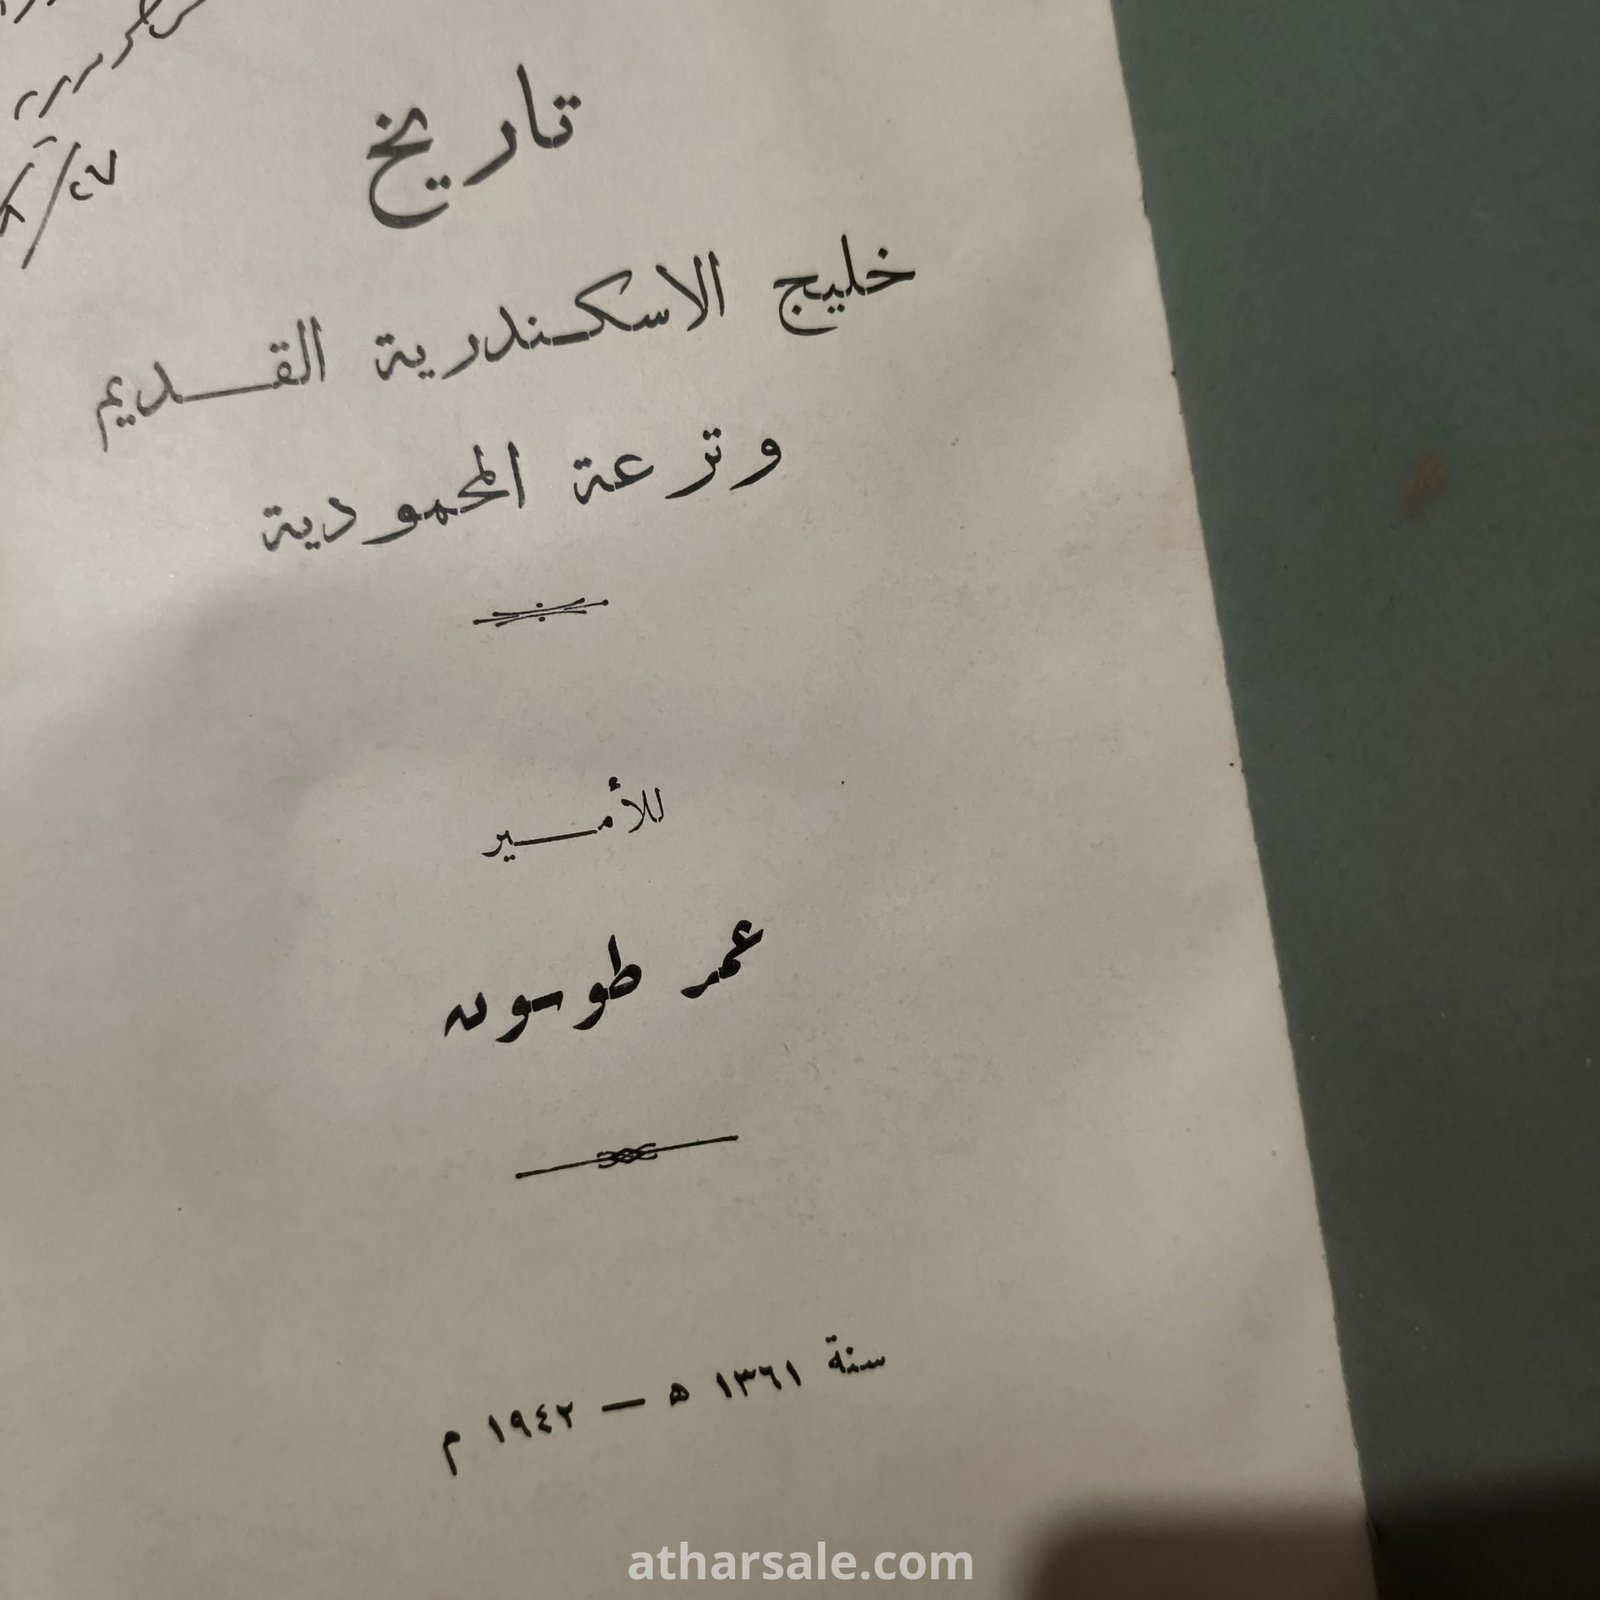 ٢٧/٨
تاريخ
خليج الاسكندرية القديم
وترعة المحمودية
للأمير
عمر طوسون
سنة ١٣٦١ ه — ١٩٤٢ م
atharsale.com